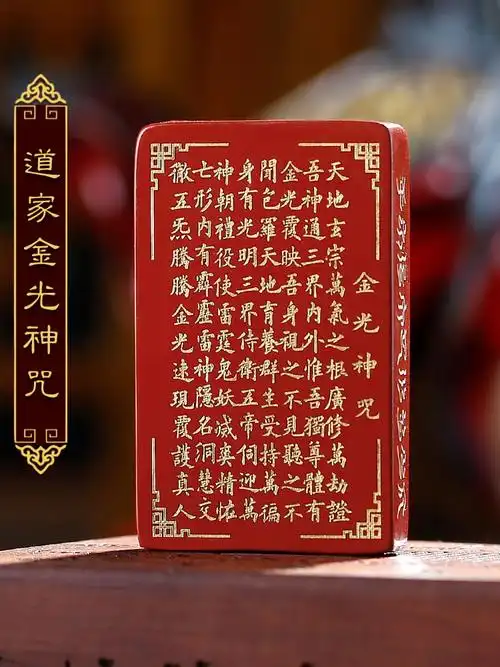 道家金光神咒
金光神咒
天地玄宗萬氣之根廣修萬劫證
吾神通三界內外惟吾獨尊體有
金光覆映吾身視之不見聽之不
聞包羅天地育養群生受持萬徧
身有光明三界侍衛五帝伺迎萬
神朝禮役使雷霆鬼妖滅爽精怪
亡形內有霹靂雷神隱名洞慧交
徹五炁騰騰金光速現覆護真人